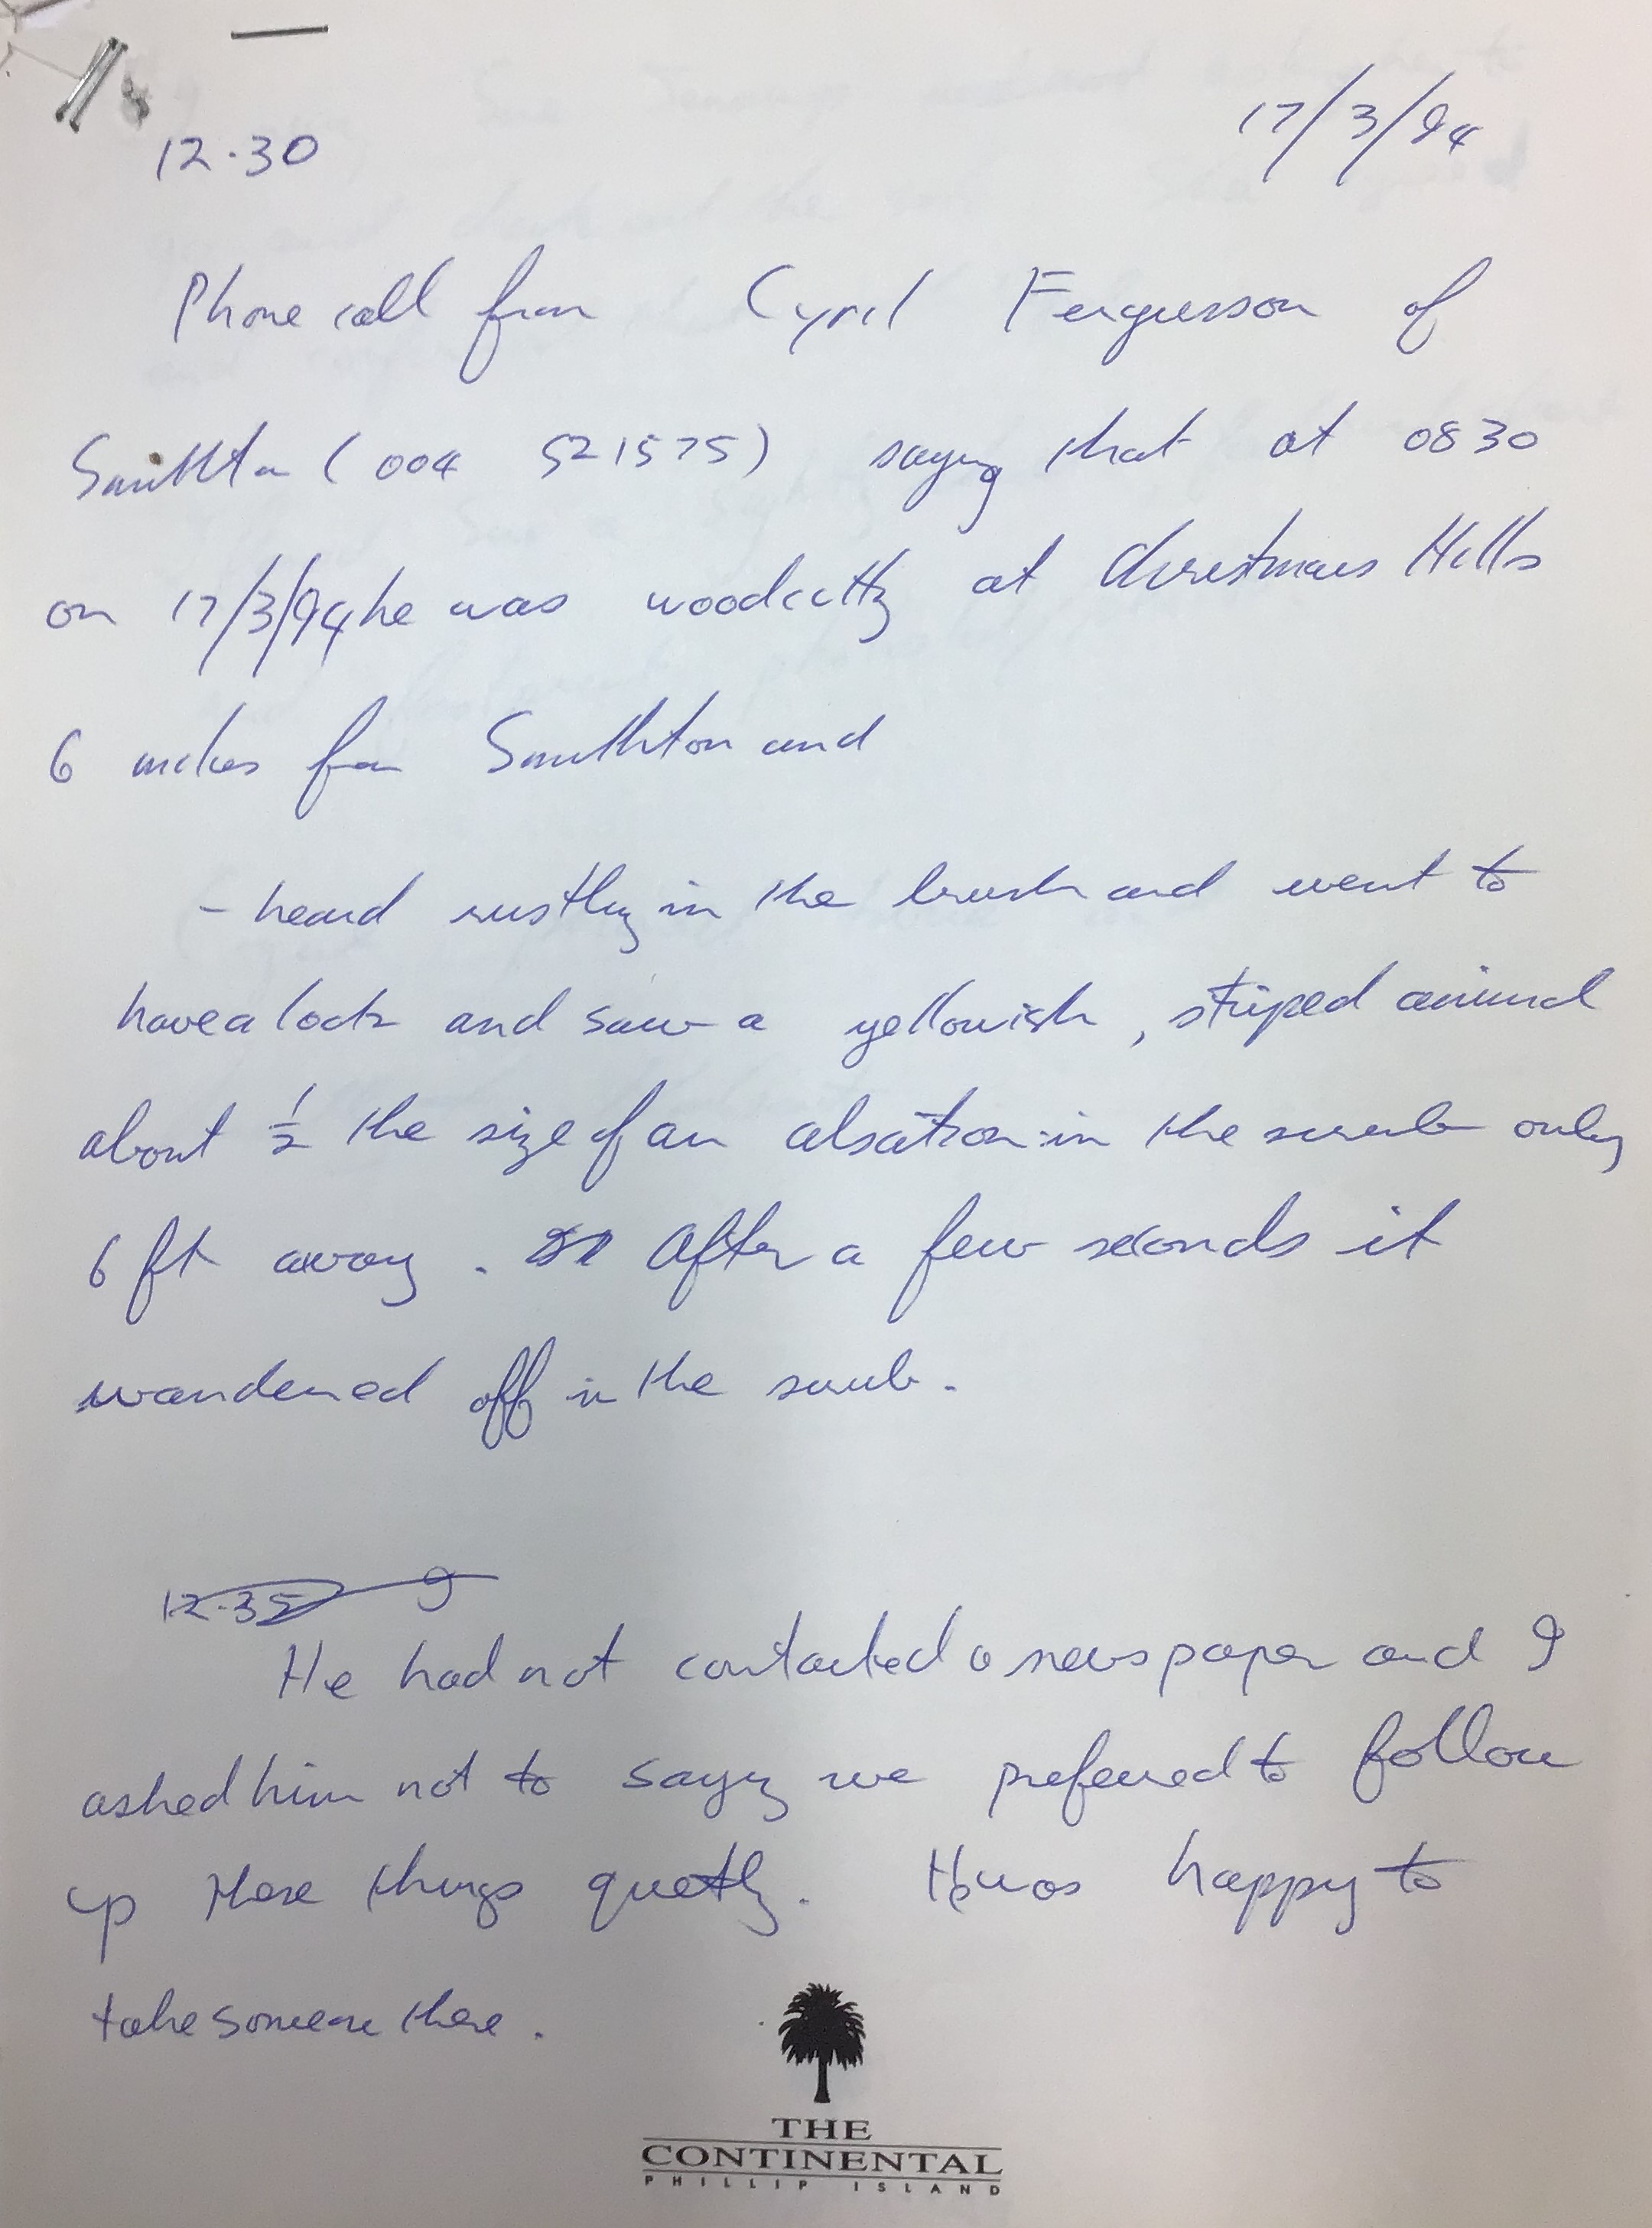 12.30
17/3/94
Phone call from Cyril Fergusson of
Smithton (004 521575) saying that at 0830
on 17/3/94 he was woodcutting at Christmas Hills
6 miles from Smithton and
- heard rustling in the brush and went to
have a look and saw a yellowish, striped animal
about 1/2 the size of an alsation in the scrub only
6 ft away. After a few seconds it
wandered off in the scrub.
12.35 I
He had not contacted a newspaper and I
asked him not to saying we preferred to follow
up these things quietly. He was happy to
take someone there.
THE
CONTINENTAL
PHILLIP ISLAND